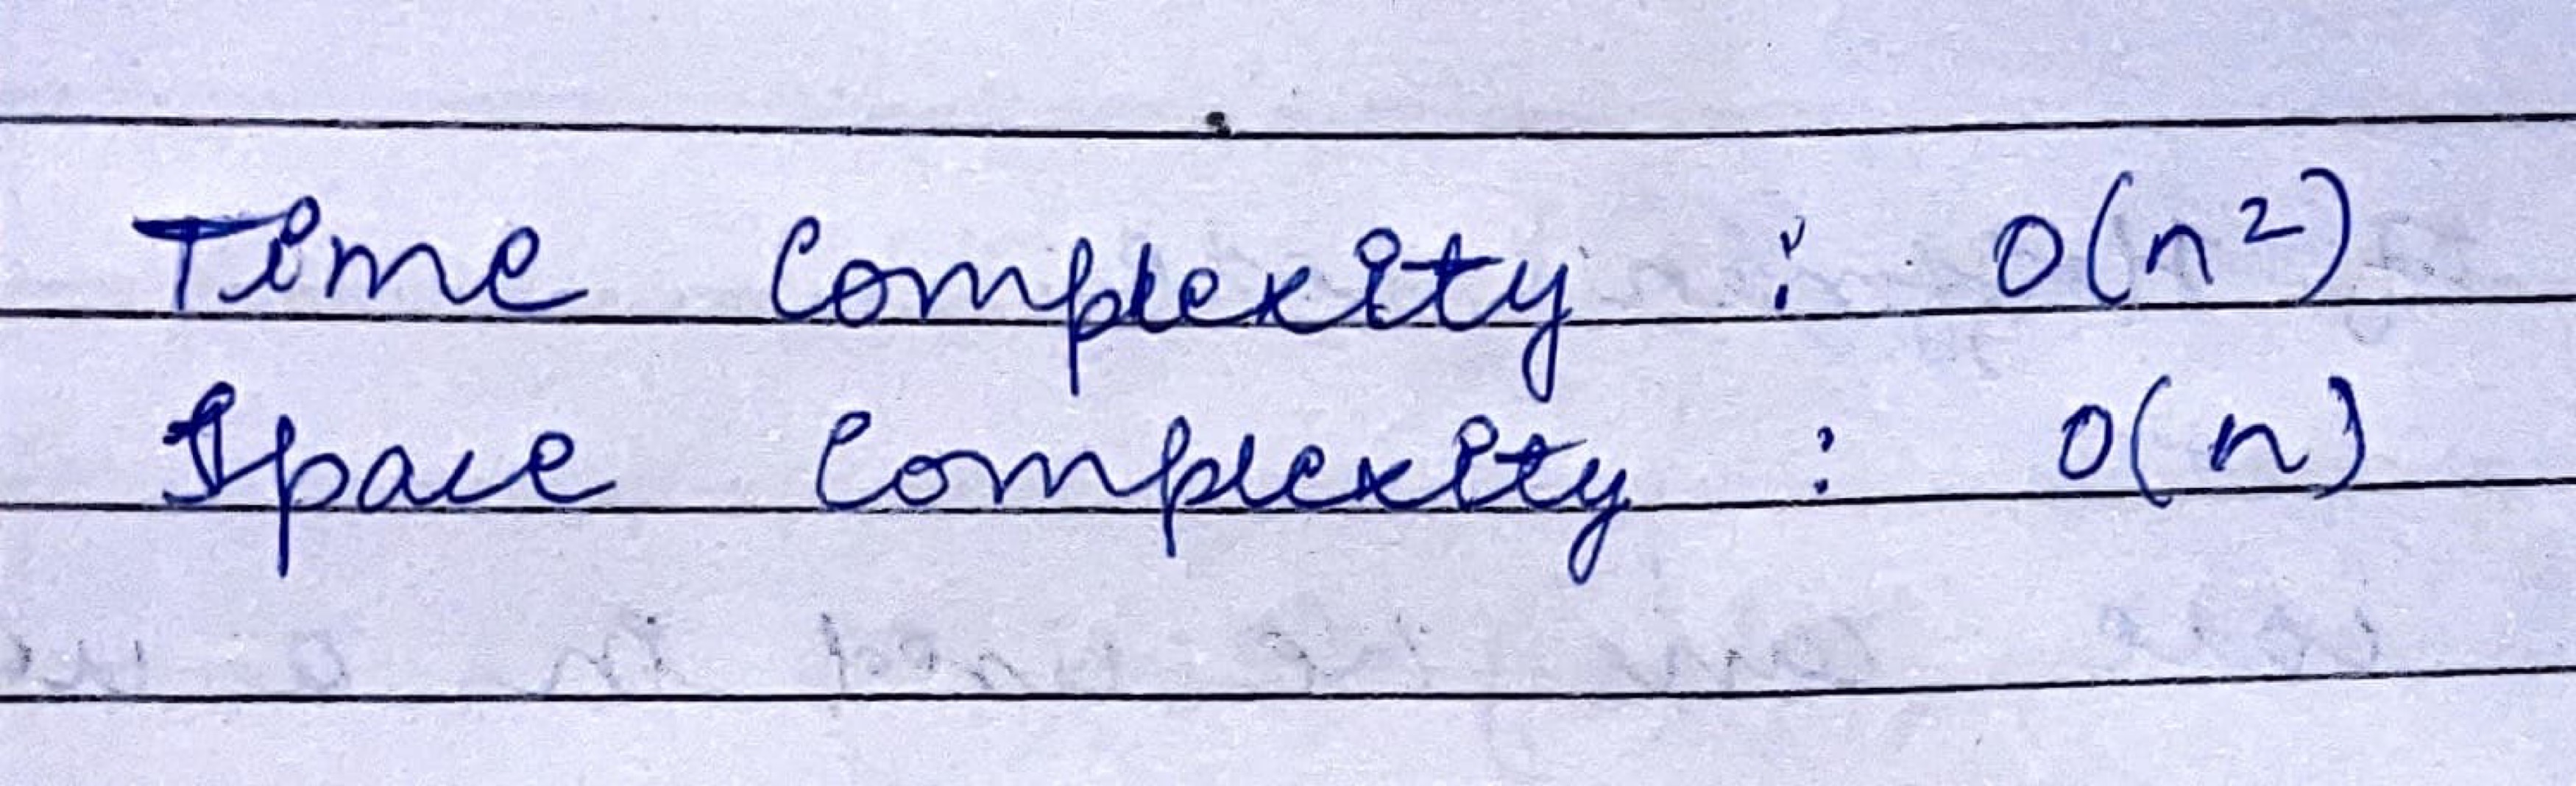 Time Complexity : O(n²)
Space Complexity : O(n)